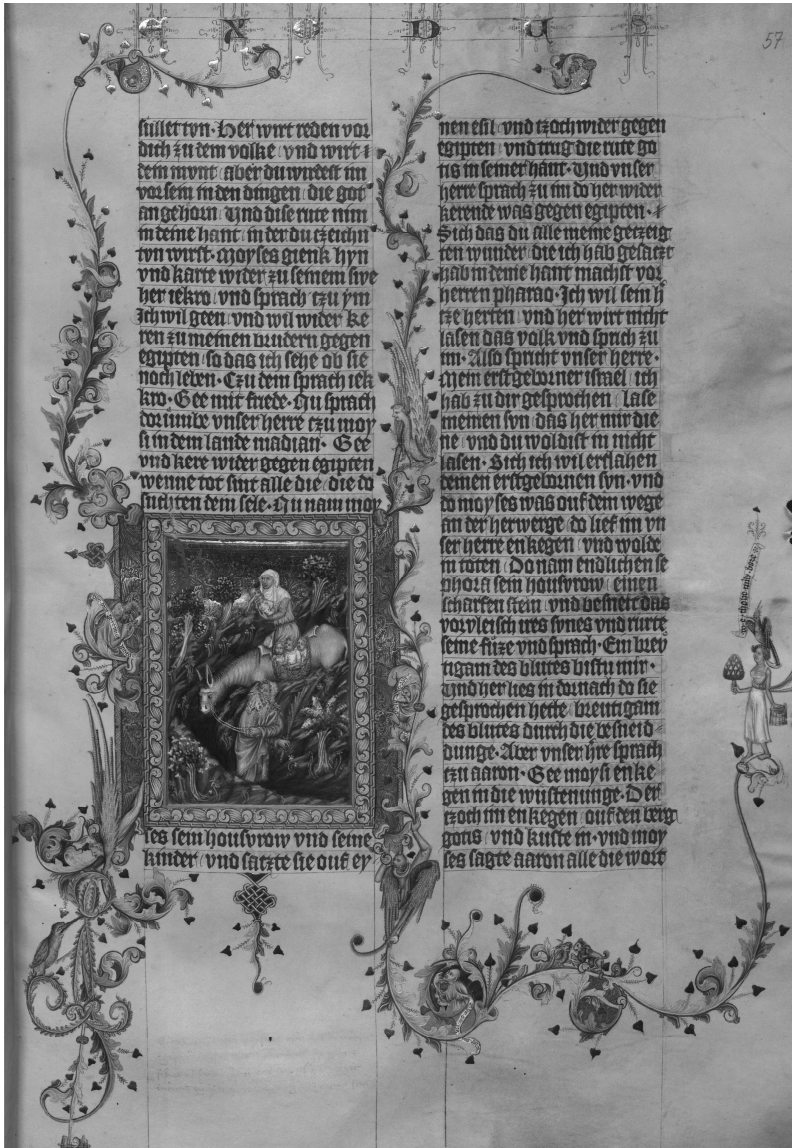 EXODUS
57
sullet tvn · Her wirt reden vor
dich zu dem volke vnd wirt i
dein mvnt aber du wirdest im
vor sein in den dingen die got
an gehorn Vnd dise rute nim
in deine hant in der du tzeichn
tvn wirst · Moyses gienk hyn
vnd karte wider zu seinem swe
her iekro vnd sprach tzu ym
Ich wil geen vnd wil wider ke
ren zu meinen brudern gegen
egipten so das ich sehe ob sie
noch leben · Czu dem sprach iek
kro · Gee mit frede · Nu sprach
dor umbe vnser herre tzu moy
si in dem lande madian · Gee
vnd kere wider gegen egipten
wenne tot sint alle die die do
suchten dein sele · Nu nam moy
ses sein housvrow vnd seine
kinder vnd satzte sie ouf ey
nen esil vnd tzoch wider gegen
egipten vnd trug die rute go
tis in seiner hant · Vnd vnser
herre sprach zu im do her wider
kerende was gegen egipten ·
Sich das du alle meine getzeig
ten wunder die ich hab gesatzt
hab in deine hant machst vor
herren pharao · Ich wil sein h
tze herten vnd her wirt nicht
lasen das volk vnd sprich zu
im · Also spricht vnser herre ·
Mein erstgeborner israel ich
hab zu dir gesprochen lase
meinen svn das her mir die
ne vnd du woldist in nicht
lasen · Sich ich wil erslahen
deinen erstgebornen svn · vnd
do moyses was ouf dem wege
an der herwerge do lief im vn
ser herre enkegen vnd wolde
in toten Do nam endlichen se
phora sein housvrow einen
scharfen stein vnd besneit das
vorvleisch ires svnes vnd rurte
seine fuze vnd sprach · Ein brev
tigam des blutes bistu mir ·
Vnd her lies in dornach do sie
gesprochen hette breutigam
des blutes durch die besneid
dunge · Aber vnser hre sprach
tzu aaron · Gee moysi enke
gen in die wustenunge · Der
tzoch im enkegen ouf den berg
gotis vnd kuste in · vnd moy
ses sagte aaron alle die wort